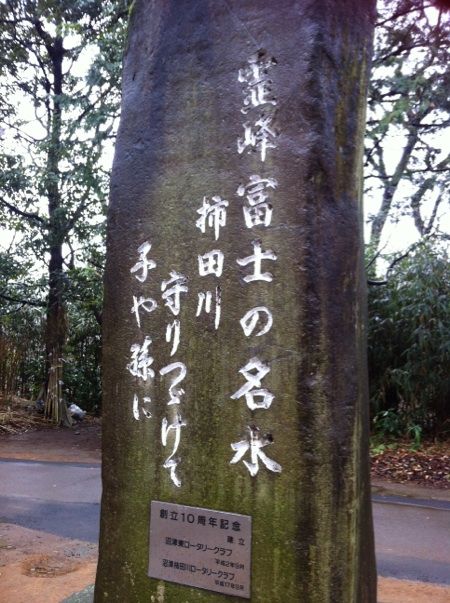 霊峰富士の名水
柿田川
守りつづけて
子や孫に
創立10周年記念
建立
沼津東ロータリークラブ
平成2年9月
沼津柿田川ロータリークラブ
平成17年9月